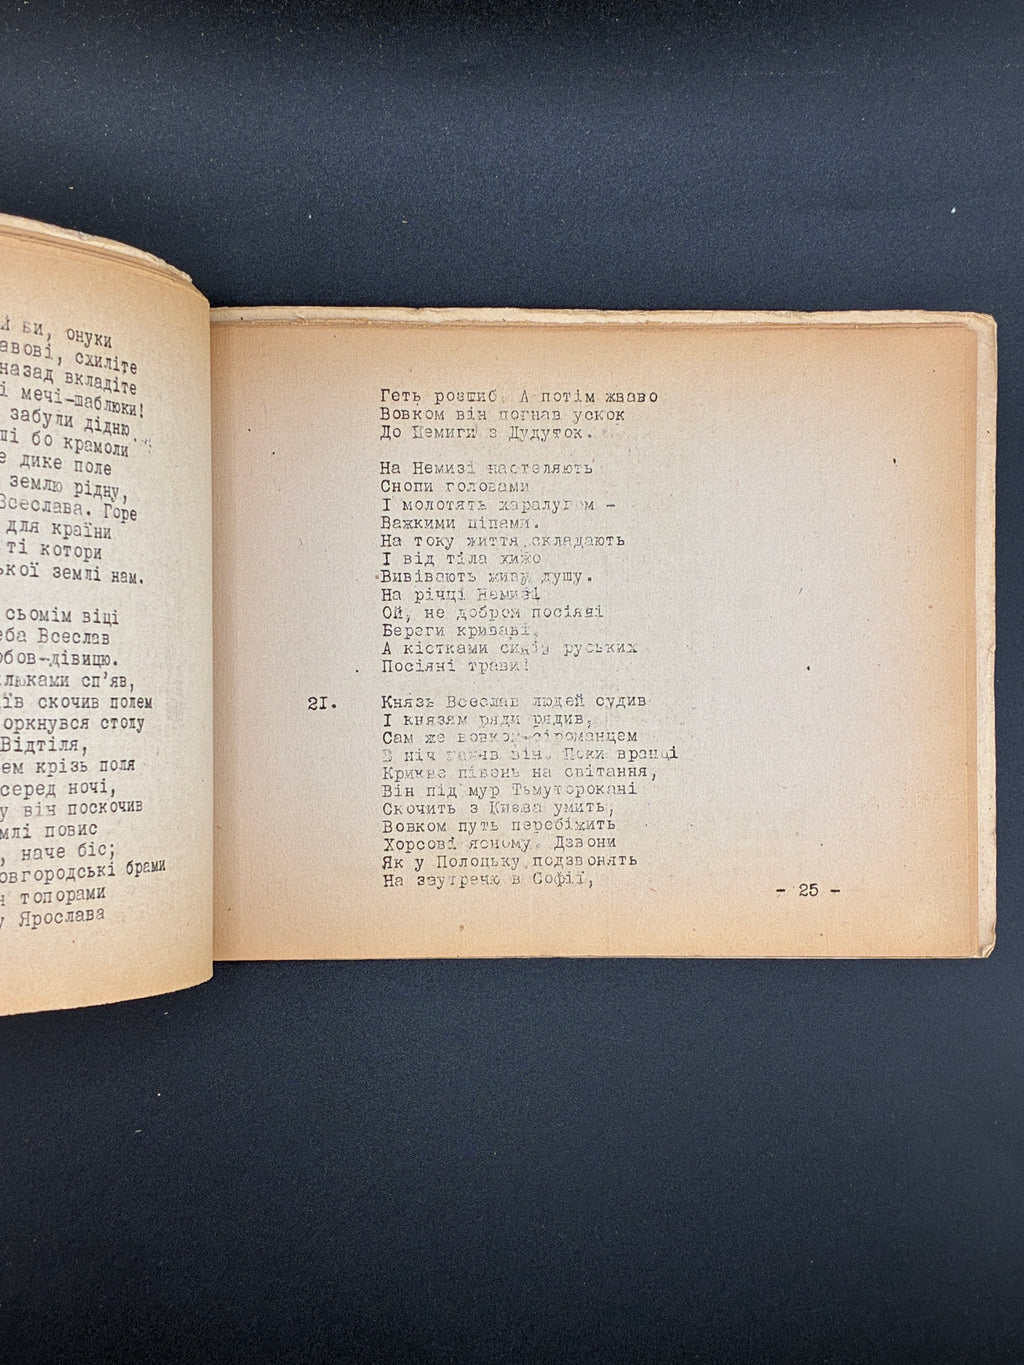 ви, онуки
схиліте
назад вкладіте
і мечі-шаблюки!
забули дідню
бо крамоли
дике поле
землю рідну,
Всеслава. Горе
для країни
ті котори
землі нам.
сьомім віці
Всеслав
дівицю.
сп'яв,
скочив полем
столу
Відтіля,
крізь поля
серед ночі,
він поскочив
повис
, наче біс;
брами
топорами
Ярослава
Геть розшиб. А потім жваво
Вовком він погнав ускок
До Немиги з Дудуток.
На Немизі настеляють
Снопи головами
І молотять харалугом –
Важкими ціпами.
На току життя складають
І від тіла хижо
Вивівають живу душу.
На річці Немизі
Ой, не добром посіяні
Береги криваві,
А кістками синів руських
Посіяні трави!
21. Князь Всеслав людей судив
І князям ряди рядив,
Сам же вовком-сіроманцем
В ніч гонив він. Поки вранці
Крикне півень на світання,
Він під мур Тьмуторокані
Скочить з Києва умить,
Вовком путь перебіжить
Хорсові ясному. Дзвони
Як у Полоцьку подзвонять
На заутреню в Софії,
- 25 -